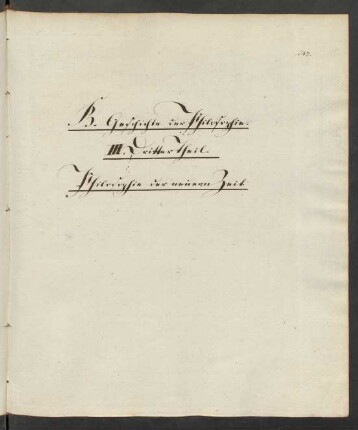 B. Geschichte der Philosophie.
III. Dritter Theil.
Philosophie der neuern Zeit.